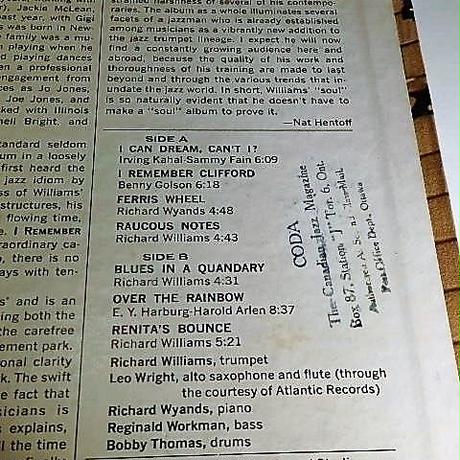 , Jackie McLean,
ast year, with Gigi
s was born in New
family was a mu-
n playing when he
d playing dances
en a professional
engagement from
ces as Jo Jones,
Joe Jones, and
cked with Illinois
nell Bright, and
standard seldom
um in a loosely
first heard the
jazz idiom by
ss of Williams'
structures, his
flowing time,
e. I REMEMBER
raordinary ca-
, there is no
ays with ten-
s' and is an
ing both the
the carefree
ement park.
onal clarity
k. The swift
e fact that
sicians is
explains,
ll the time
strained harshness of several of his contempo-
raries. The album as a whole illuminates several
facets of a jazzman who is already established
among musicians as a vibrantly new addition to
the jazz trumpet lineage. I expect he will now
find a constantly growing audience here and
abroad, because the quality of his work and
thoroughness of his training are made to last
beyond and through the various trends that in-
undate the jazz world. In short, Williams' "soul"
is so naturally evident that he doesn't have to
make a "soul" album to prove it.
—Nat Hentoff
SIDE A
I CAN DREAM, CAN'T I?
Irving Kahal-Sammy Fain 6:09
I REMEMBER CLIFFORD
Benny Golson 6:18
FERRIS WHEEL
Richard Wyands 4:48
RAUCOUS NOTES
Richard Williams 4:43
SIDE B
BLUES IN A QUANDARY
Richard Williams 4:31
OVER THE RAINBOW
E. Y. Harburg-Harold Arlen 8:37
RENITA'S BOUNCE
Richard Williams 5:21
Richard Williams, trumpet
Leo Wright, alto saxophone and flute (through
the courtesy of Atlantic Records)
Richard Wyands, piano
Reginald Workman, bass
Bobby Thomas, drums
CODA
The Canadian Jazz Magazine
Box 87, Station "J" Tor. 6, Ont.
Post Office Dept. Ottawa